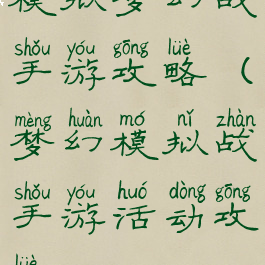 模拟梦幻战
shǒu yóu gōng lüè
手游攻略（
mèng huàn mó nǐ zhàn
梦幻模拟战
shǒu yóu huó dòng gōng
手游活动攻
lüè